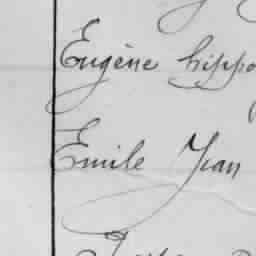 Eugène hippo
Emile Jean